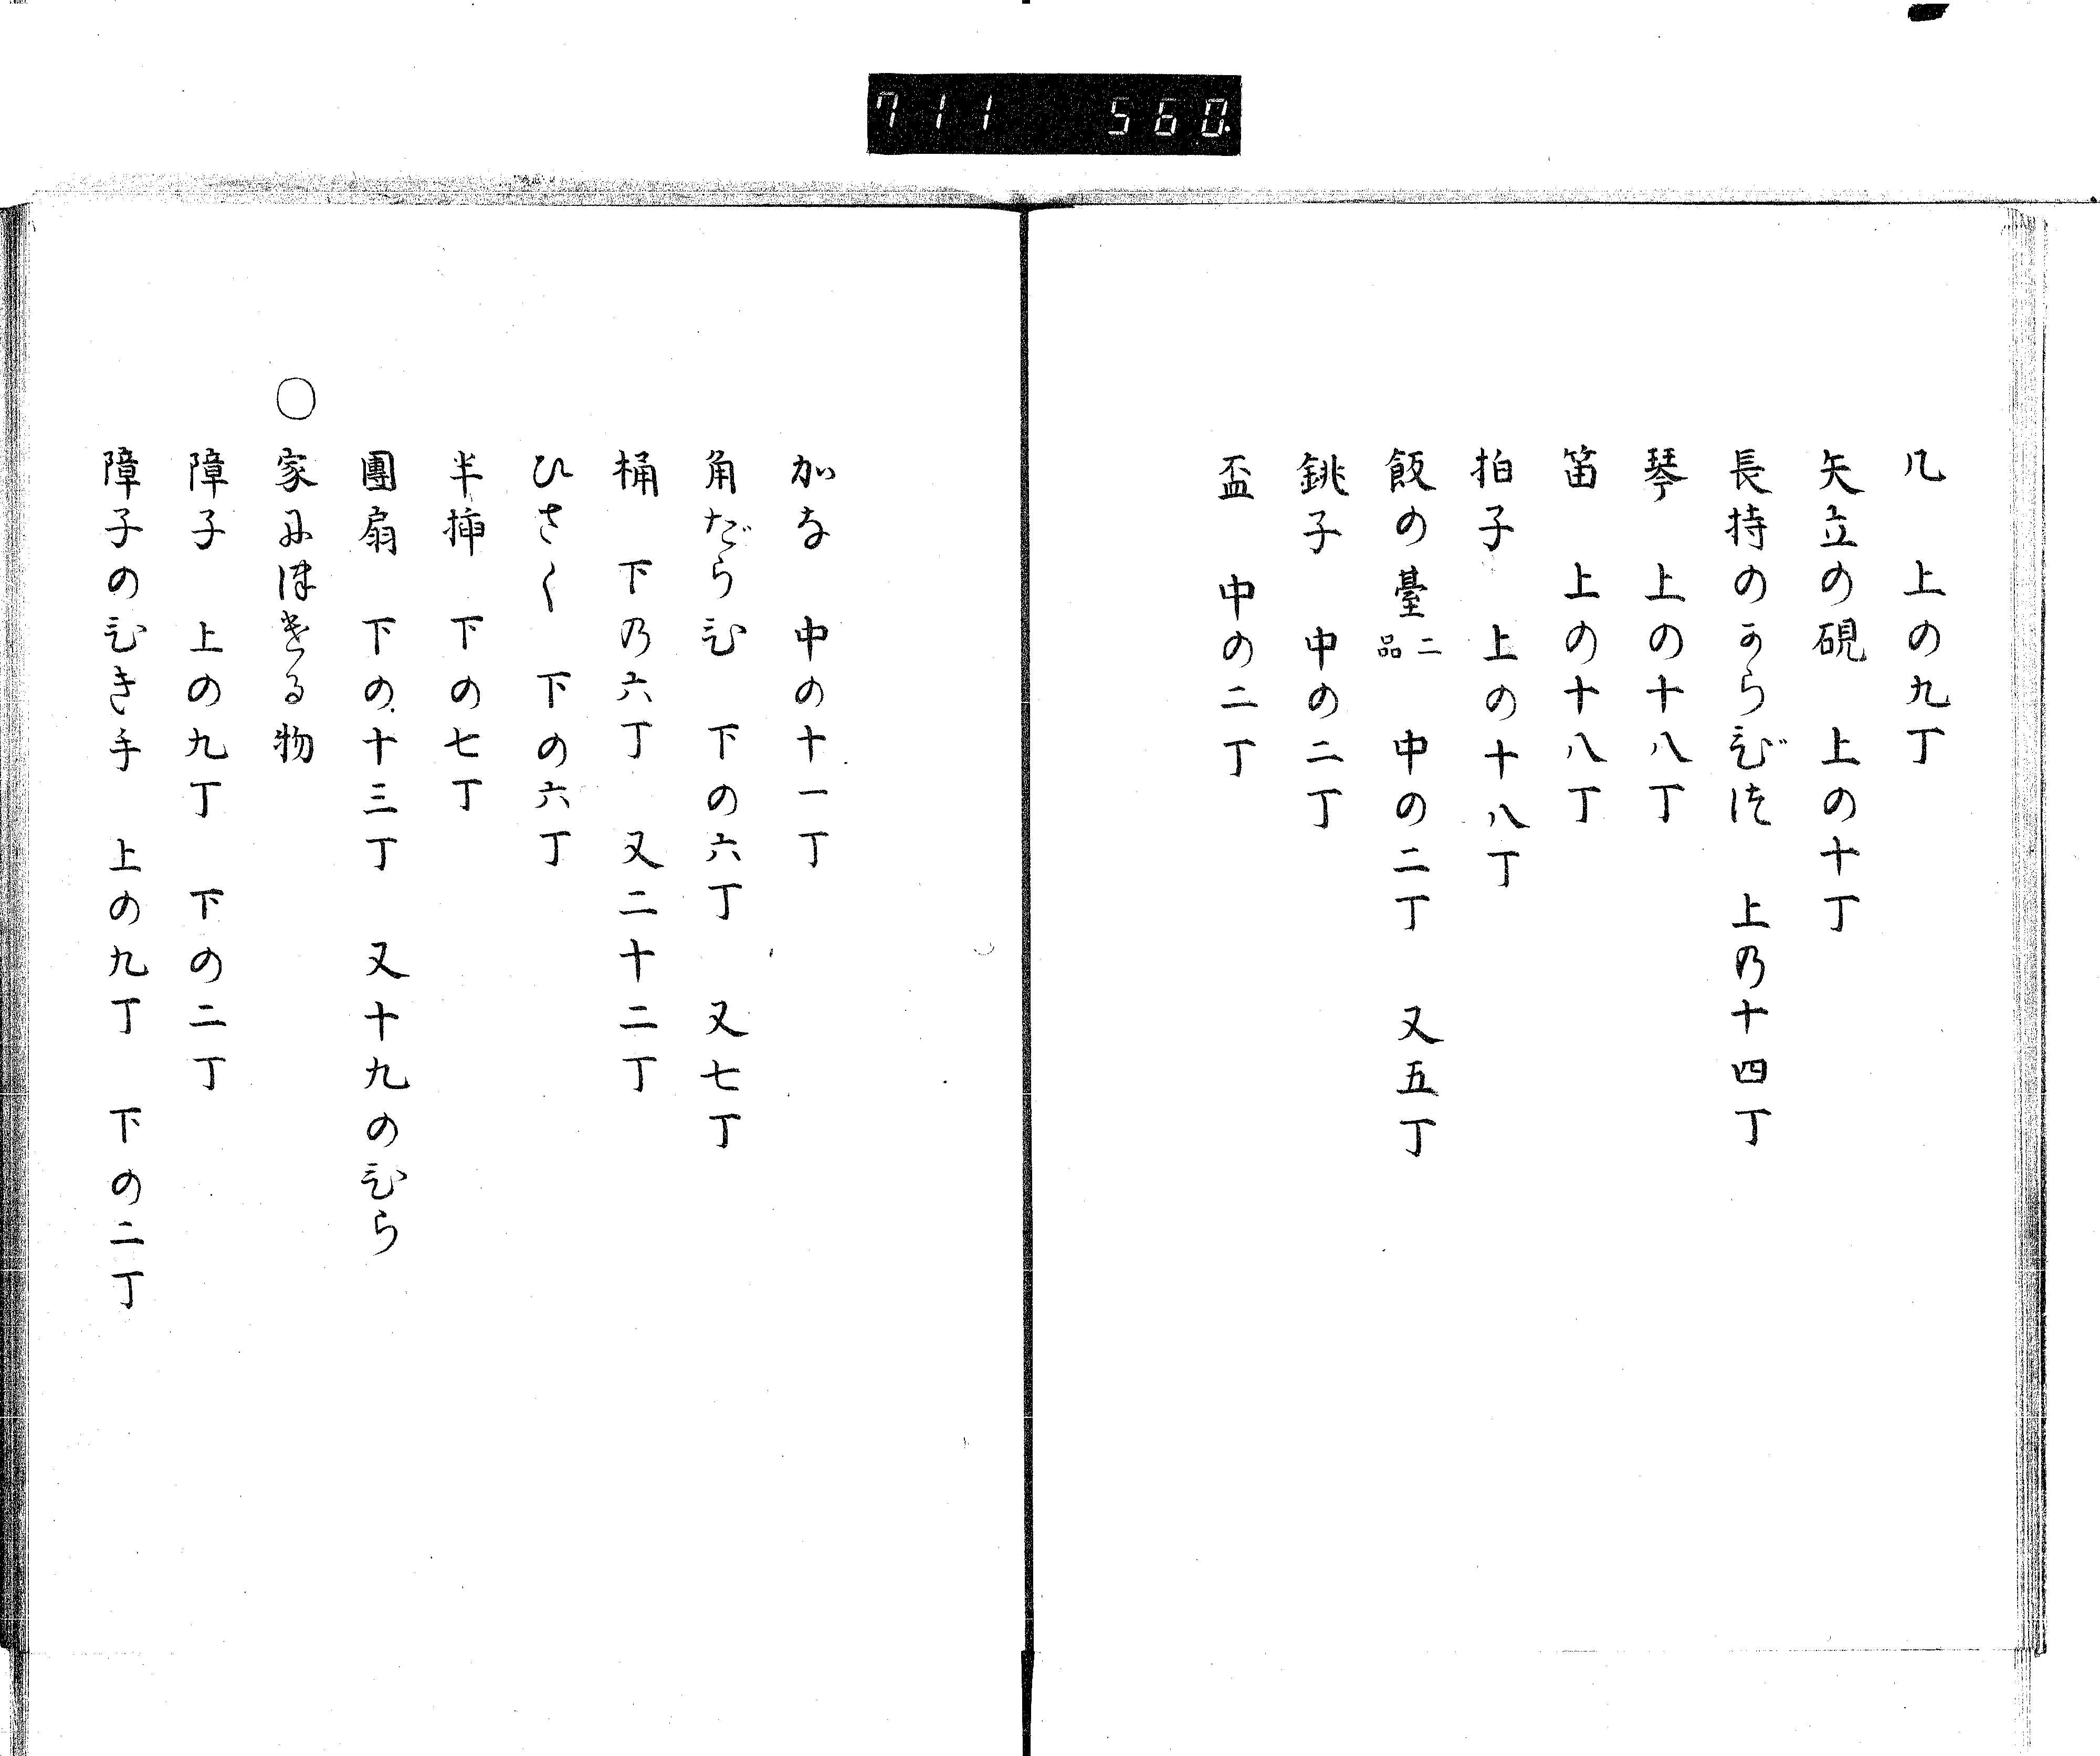 711 560.
几 上の九丁
矢立の硯 上の十丁
長持のからびつ 上の十四丁
琴 上の十八丁
笛 上の十八丁
拍子 上の十八丁
飯の臺二品 中の二丁 又五丁
銚子 中の二丁
盃 中の二丁
かな 中の十一丁
角だらひ 下の六丁 又七丁
桶 下の六丁 又二十二丁
ひさく 下の六丁
半挿 下の七丁
團扇 下の十三丁 又十九のひら
○家につきたる物
障子 上の九丁 下の二丁
障子のひき手 上の九丁 下の二丁